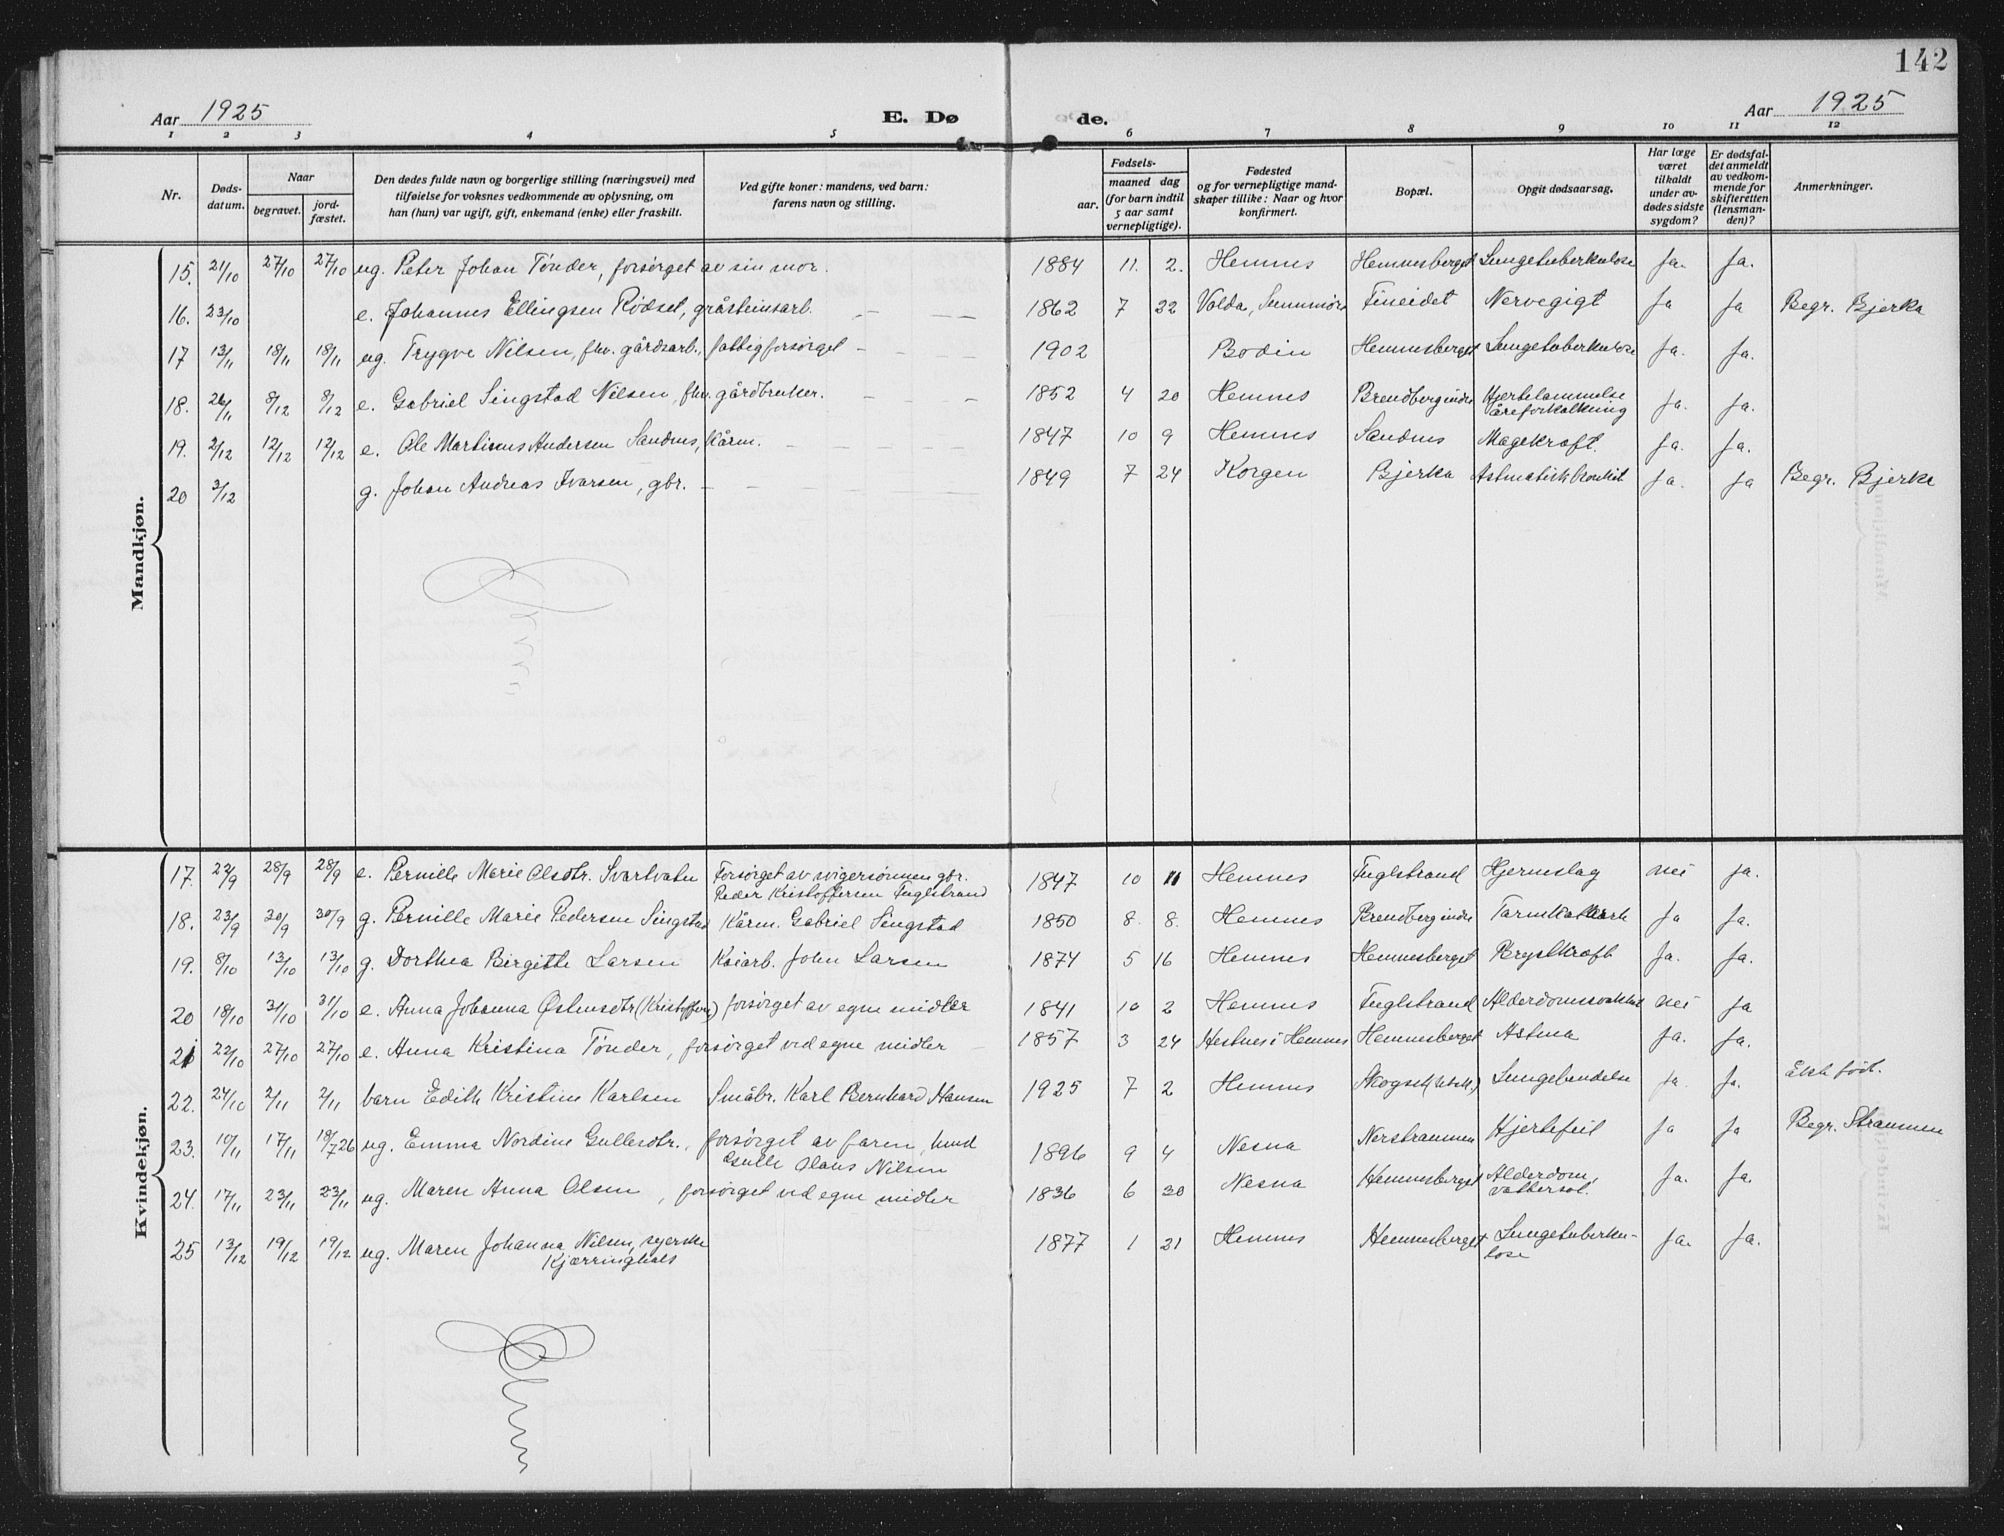 142
Aar 1925 E. Døde. Aar 1925
1 2 3 4 5 6 7 8 9 10 11 12
Nr. Døds-datum. Naar begravet. jord-fæstet. Den dødes fulde navn og borgerlige stilling (næringsvei) med tilføielse for voksnes vedkommende av oplysning, om han (hun) var ugift, gift, enkemand (enke) eller fraskilt. Ved gifte koner: mandens, ved barn: farens navn og stilling. Fødsels- aar. maaned dag (for barn indtil 5 aar samt vernepligtige). Fødested og for vernepligtige mand-skaper tillike: Naar og hvor konfirmert. Bopæl. Opgit dødsaarsag. Har læge været tilkaldt under av-dødes sidste sygdom? Er dødsfal-det anmeldt av vedkom-mende for skifteretten (lensman-den)? Anmerkninger.
Mandkjøn.
15. 21/10 27/10 27/10 ug. Peter Johan Tønder, forsørget av sin mor. 1884 11. 2. Hemnes Hemnesberget Lungetuberkulose Ja. Ja.
16. 23/10 e. Johannes Ellingsen Rødset, gråsteinsarb. — — — 1862 7 22 Volda, Sunnmøre Fineidet Nervegigt Ja Ja Begr. Bjerka
17 13/11 18/11 18/11 ug. Trygve Nilsen, fhv. gårdsarb., fattigforsørget — — — — 1902 Bodin Hemnesberget Lungetuberkulose Ja. Ja.
18. 26/11 8/12 8/12 e. Gabriel Singstad Nilsen, fhv. gårdbruker. — — — 1852 4 20 Hemnes Brendberg indre Hjertelammelse åreforkalkning Ja. Ja.
19. 2/12 12/12 12/12 e. Ole Martinus Andersen Sandnes, kårm. — — — — 1847 10 9 Hemnes Sandnes Magekræft. Ja. Ja.
20 3/12 g. Johan Andreas Ivarsen, gbr. — — — — — 1849 7 24 Korgen Bjerka Astmatisk bronkit Ja. Ja Begr. Bjerka
Kvindekjøn.
17. 22/9 28/9 28/9 e. Pernille Marie Olsdtr. Svartvatn Forsørget av svigersønnen gbr. Peder Kristoffersen Fuglstrand 1847 10 11 Hemnes Fuglstrand Hjerneslag nei Ja.
18. 23/9 30/9 30/9 g. Pernille Marie Pedersen Singstad Kårm. Gabriel Singstad 1850 8. 8. Hemnes Brendberg indre Ja Ja.
19. 8/10 13/10 13/10 g. Dorthea Birgitte Larsen Kaiarb. John Larsen 1874 5 16 Hemnes Hemnesberget Brystkræft Ja. Ja.
20 18/10 31/10 31/10 e. Anna Johanna Østensdtr (Kristoffers) forsørget av egne midler 1841 10 2 Hemnes Fuglstrand Alderdomssvakhet nei Ja
21 22/10 27/10 27/10 e. Anna Kristina Tønder, forsørget ved egne midler — 1857 3 24 Hestnes i Hemnes Hemnesberget Astma Ja. Ja.
22. 24/10 2/11 2/11 barn Edith Kristine Karlsen Småbr. Karl Bernhard Hansen 1925 7 2 Hemnes Lungebendelse Ja. Ja. Ekte født.
23. 10/11 17/11 18/7 26 ug. Emma Nordine Gullesdtr., forsørget av faren, Gulle Olaus Nilsen 1896 9 4 Nesna Nerstraumen Hjertefeil Ja Ja Begr. Straumen
24. 17/11 23/11 23/11 ug. Maren Anna Olsen, forsørget ved egne midler 1836 6 30 Nesna Hemnesberget Alderdom, vattersot. Ja. Ja.
25 13/12 19/12 19/12 ug. Maren Johanna Nilsen, syerske Kjærringhals 1877 1 21 Hemnes Hemnesberget Lungetuberku-lose Ja. Ja.